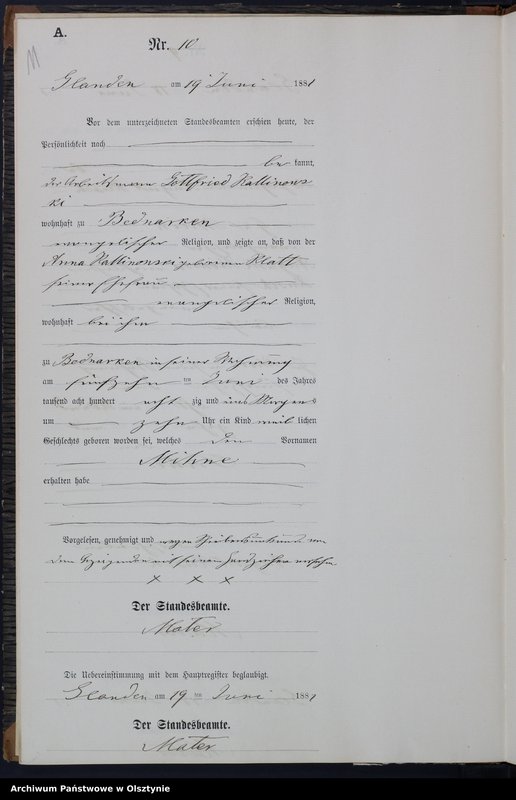 A.
11
Nr. 10
Glanden am 19 Juni 1881
Vor dem unterzeichneten Standesbeamten erschien heute, der
Persönlichkeit nach
be kannt,
der Arbeitsmann Gottfried Kallinows
ki
wohnhaft zu Bednarken
evangelischer Religion, und zeigte an, daß von der
Anna Kallinowski geborenen Klatt
seiner Ehefrau
evangelischer Religion,
wohnhaft bei ihm
zu Bednarken in seiner Wohnung
am fünfzehn ten Juni des Jahres
tausend acht hundert acht zig und eins Morgens
um zehn Uhr ein Kind weib lichen
Geschlechts geboren worden sei, welches den Vornamen
erhalten habe
Vorgelesen, genehmigt und wegen Schreibensunkunde von
dem Anzeigenden mit seinem Handzeichen versehen
x x x
Der Standesbeamte.
Mater
Die Uebereinstimmung mit dem Hauptregister beglaubigt.
Glanden am 19 ten Juni 1881
Der Standesbeamte.
Mater
Archiwum Państwowe w Olsztynie